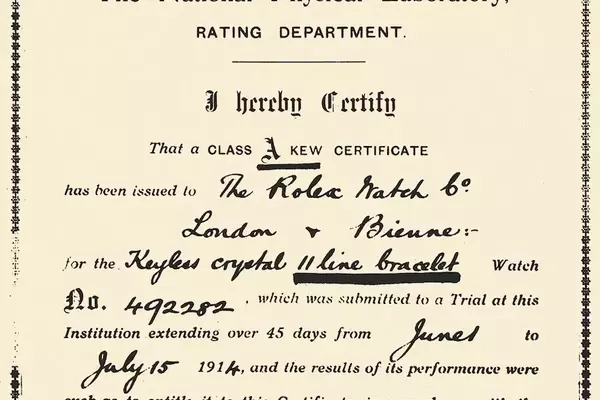 The National Physical Laboratory,
RATING DEPARTMENT.
I hereby Certify
That a CLASS A KEW CERTIFICATE
has been issued to The Rolex Watch Co.
London & Bienne:-
for the Keyless crystal 11 line bracelet Watch
No. 492282, which was submitted to a Trial at this
Institution extending over 45 days from June 1 to
July 15 1914, and the results of its performance were
such as to entitle it to this Certificate